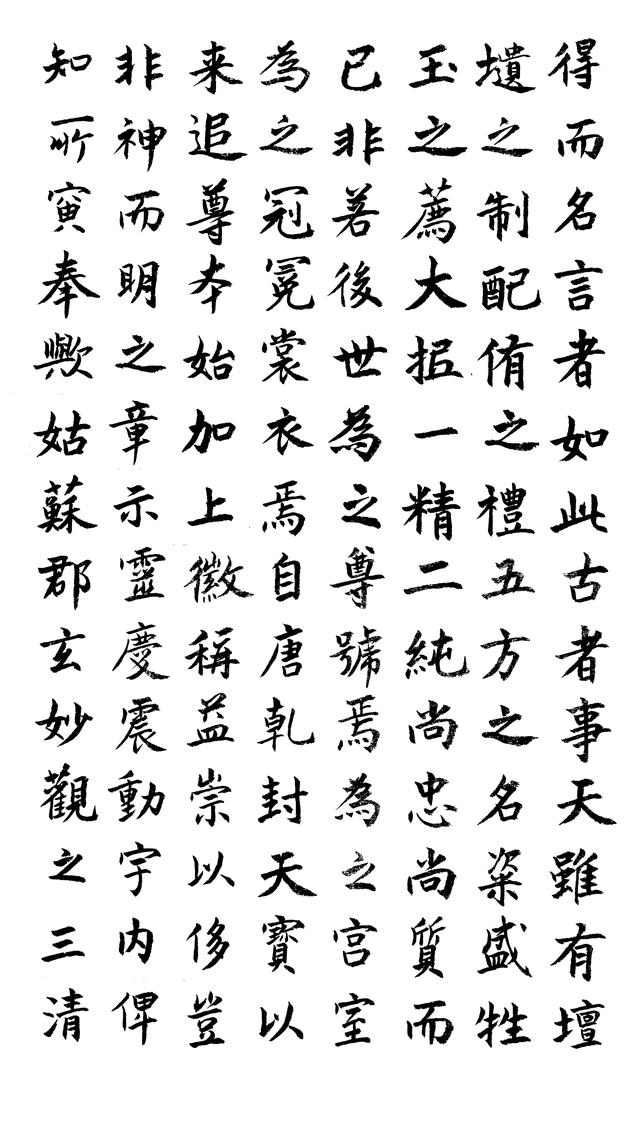 得而名言者如此古者事天雖有壇
壝之制配侑之禮五方之名粢盛牲
玉之薦大抵一精二純尚忠尚質而
已非若後世為之尊號焉為之宮室
為之冠冕裳衣焉自唐乾封天寶以
来追尊本始加上徽稱益崇以侈豈
非神而明之章示靈慶震動宇内俾
知所寅奉歟姑蘇郡玄妙觀之三清